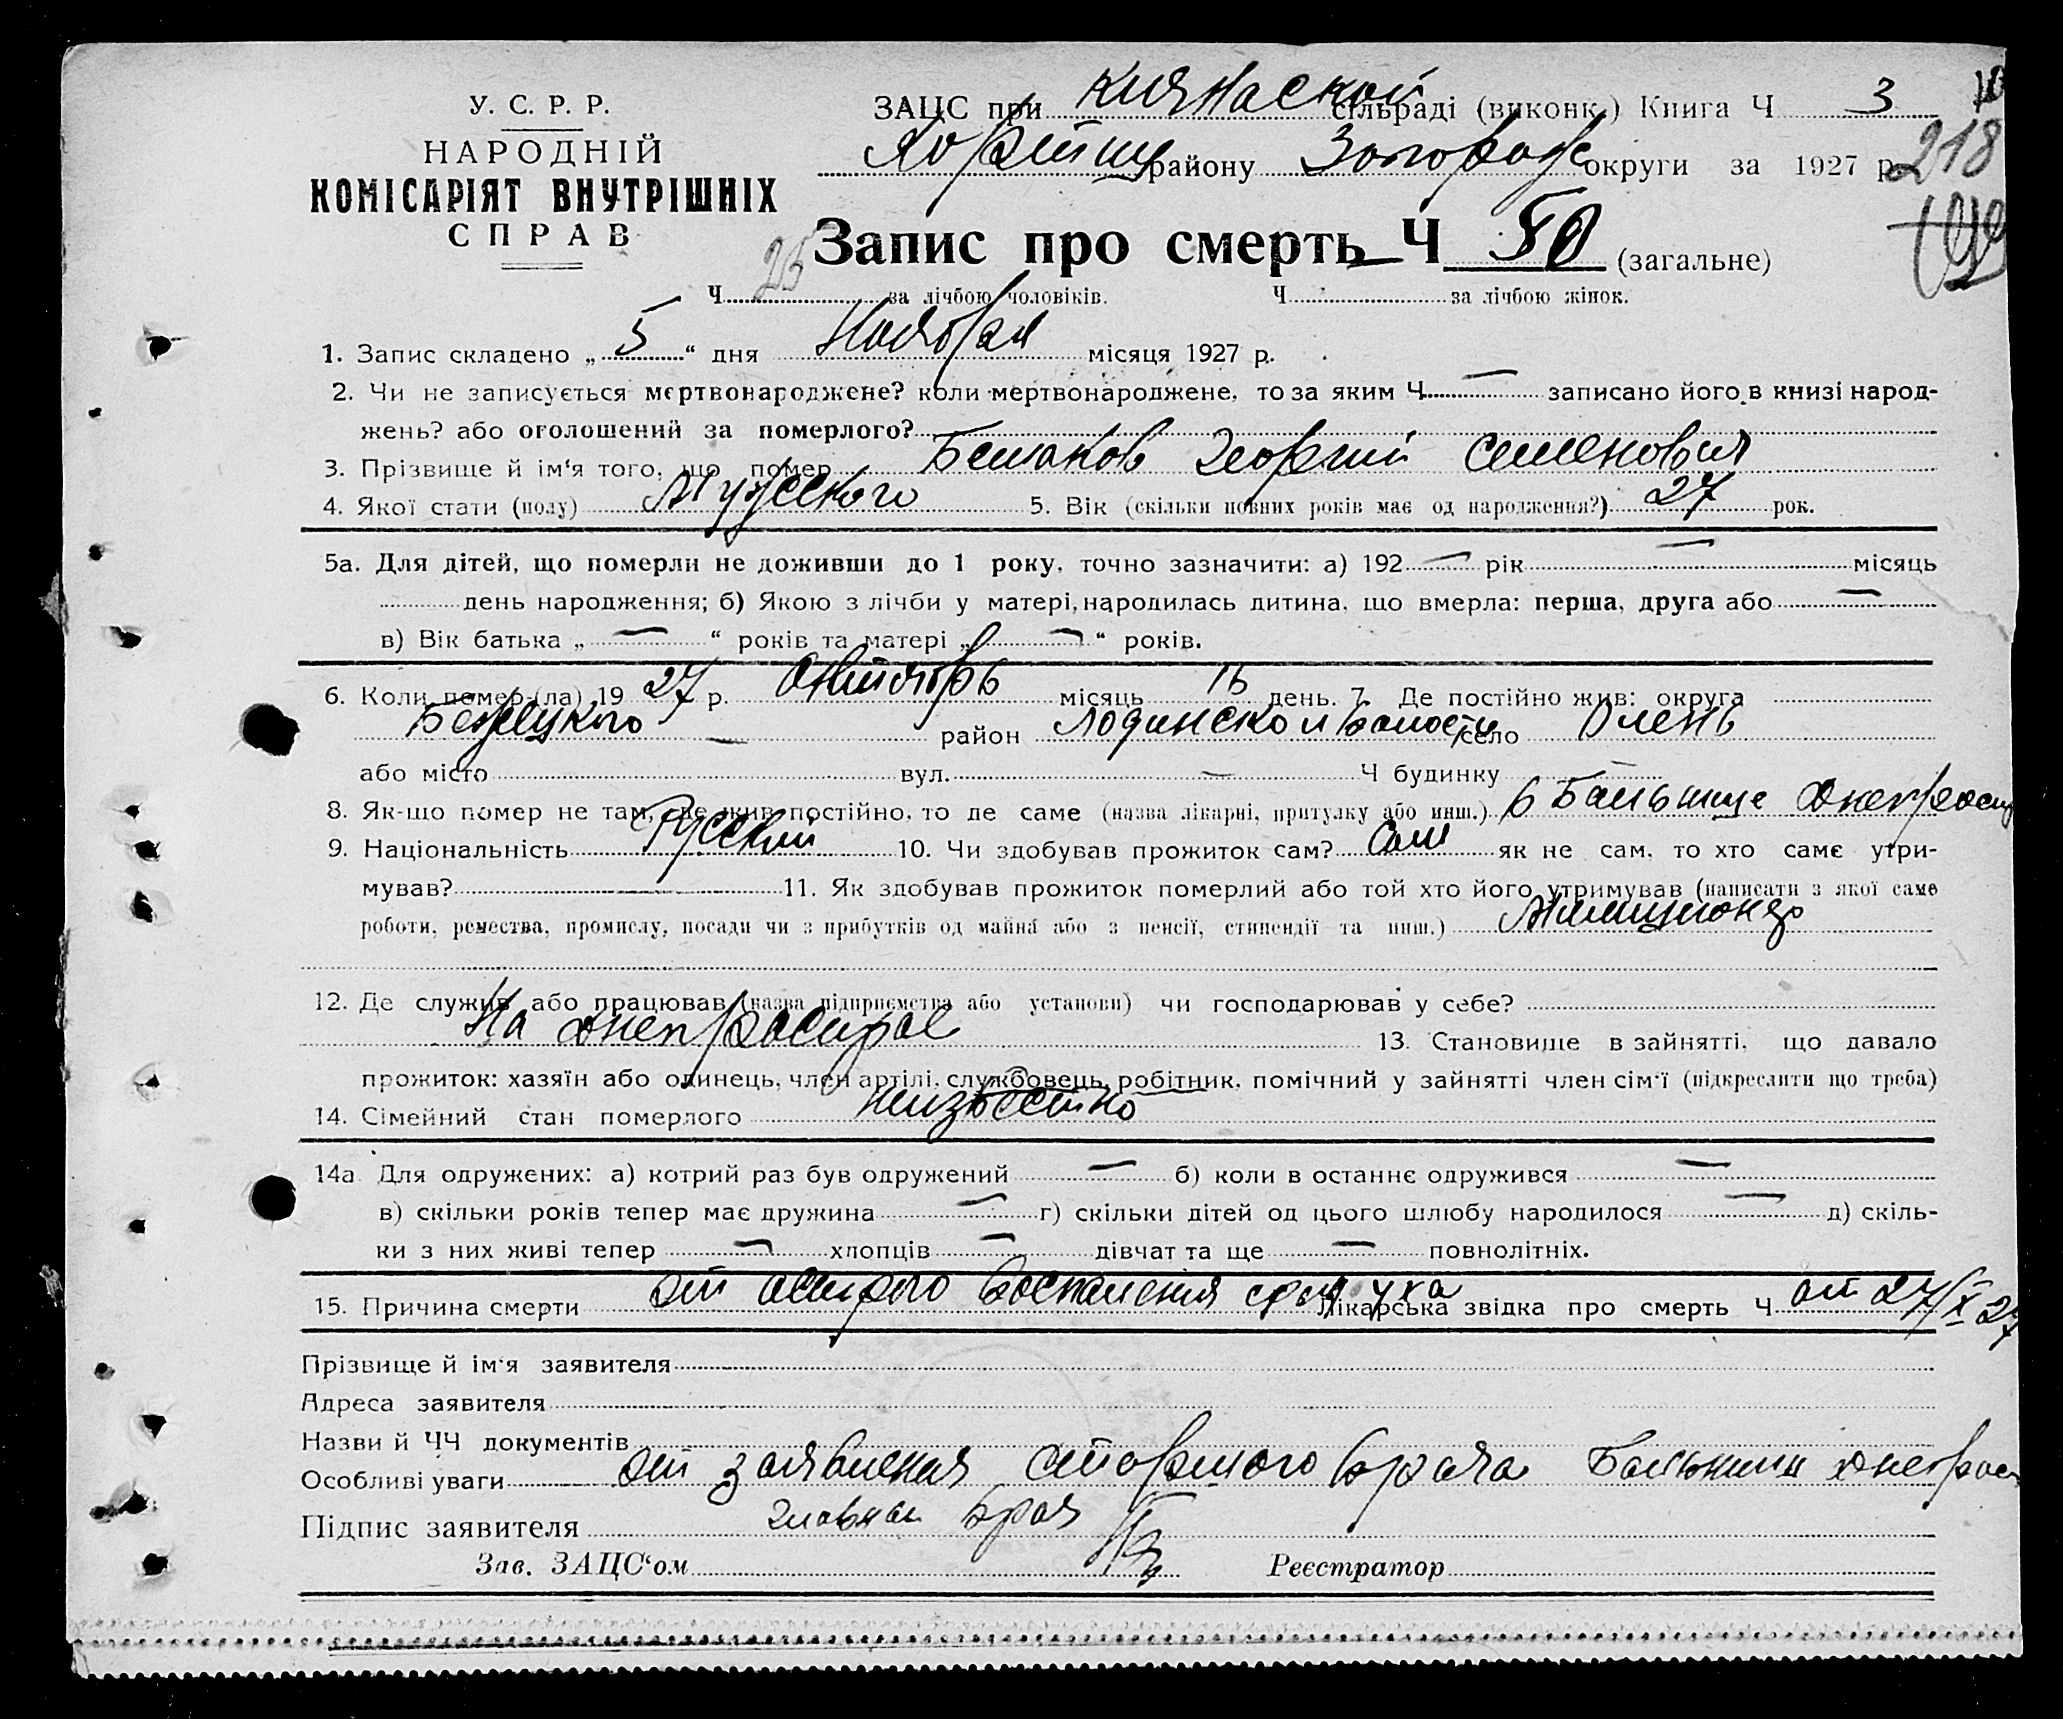 У. С. Р. Р.
НАРОДНІЙ
КОМІСАРІЯТ ВНУТРІШНІХ
СПРАВ
ЗАЦС при Кичкаской сільраді (виконк.) Книга Ч 3
района Запорож округи за 1927 р.
218
Запис про смерть Ч 50 (загальне)
Ч 25 за лічбою чоловіків. Ч за лічбою жінок.
1. Запис складено „ 5 “ дня Ноября місяця 1927 р.
2. Чи не записується мертвонароджене? коли мертвонароджене, то за яким Ч — записано його в книзі народ-
жень? або оголошений за померлого?
3. Прізвище й ім‘я того, що помер Георгий Семенович
4. Якої статі (полу) Мужского 5. Вік (скільки повних років має од народження?) 27 рок.
5а. Для дітей, що померли не доживши до 1 року, точно зазначити: а) 192 — рік — місяць
день народження; б) Якою з лічби у матері, народилась дитина, що вмерла: перша, друга або —
в) Вік батька „ — “ років та матері „ — “ років.
6. Коли помер-(ла) 19 27 р. Октябрь місяць день. 7. Де постійно жив: округа
Бежецкого — район волости село
або місто вул. — Ч будинку
8. Як-що помер не там, де жив постійно, то де саме (назва лікарні, притулку або инш.) в Больнице
9. Національність Русский 10. Чи здобував прожиток сам? Сам як не сам, то хто саме утри-
мував? 11. Як здобував прожиток померлий або той хто його утримував (написати з якої саме
роботи, ремества, промислу, посади чи з прибутків од майна або з пенсії, стипендії та инш.)
12. Де служив або працював (назва підприємства або установи) чи господарював у себе?
На Днепрострое 13. Становище в зайнятті, що давало
прожиток: хазяїн або одинець, член артілі, службовець, робітник, помічний у зайнятті член сім‘ї (підкреслити що треба)
14. Сімейний стан померлого
14а Для одружених: а) котрий раз був одружений — б) коли в останнє одружився —
в) скільки років тепер має дружина — г) скільки дітей од цього шлюбу народилося — д) скіль-
ки з них живі тепер — хлопців — дівчат та ще — повнолітніх.
15. Причина смерти От острого воспаления уха Лікарська звідка про смерть Ч от 27/X 27
Прізвище й ім‘я заявителя
Адреса заявителя
Назви й ЧЧ документів
Особливі уваги от заявления старшого врача Больници
Підпис заявителя врач
Зав. ЗАЦС‘ом Реєстратор